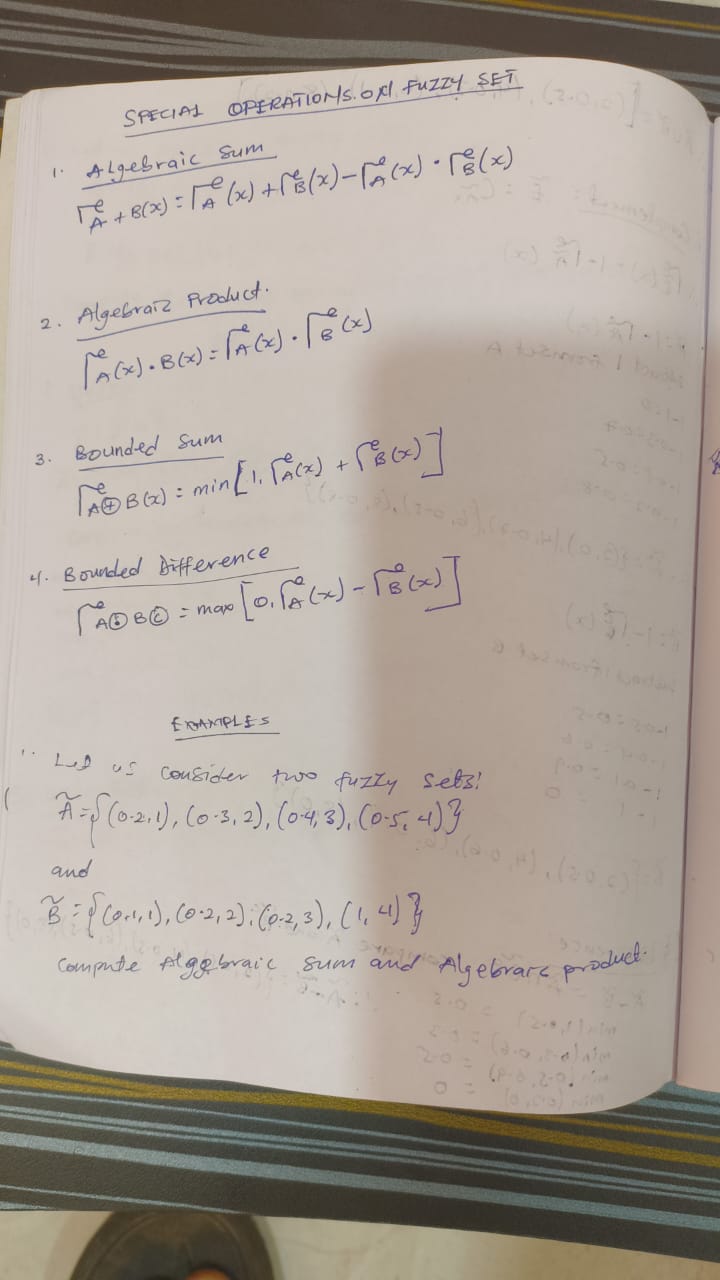 SPECIAL OPERATIONS ON FUZZY SET
1. Algebraic Sum
Γ̃A + B(x) = Γ̃A(x) + Γ̃B(x) - Γ̃A(x) · Γ̃B(x)
2. Algebraic Product.
Γ̃A(x) · B(x) = Γ̃A(x) · Γ̃B(x)
3. Bounded Sum
Γ̃A⊕B(x) = min[1, Γ̃A(x) + Γ̃B(x)]
4. Bounded Difference
= max [0, Γ̃A(x) - Γ̃B(x)]
EXAMPLES
1. Let us consider two fuzzy sets:
Ã = {(0.2, 1), (0.3, 2), (0.4, 3), (0.5, 4)}
and
B̃ = {(0.1, 1), (0.2, 2), (0.2, 3), (1, 4)}
Compute Algebraic sum and Algebraic product.